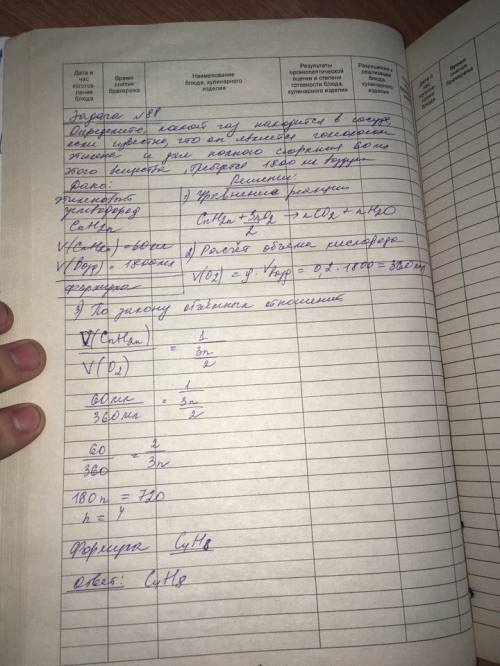 Дата и час изготовления блюда
Время снятия бракеража
Наименование блюда, кулинарного изделия
Результаты органолептической оценки и степени готовности блюда, кулинарного изделия
Разрешение к реализации блюда, кулинарного изделия
Задача №88
Определите, какой газ находится в сосуде,
если известно, что он является гомологом
этилена и для полного сгорания 60 мл
этого вещества, требуется 1800 мл воздуха
Дано:
Решение:
этиленовый
углеводород
CnH2n
V(CnH2n) = 60 мл
V(возд) = 1800 мл
Формула
1) Уравнение реакции
CnH2n + 3nO2/2 → nCO2 + nH2O
2) Расчёт объёма кислорода
V(O2) = φ · Vвозд = 0,2 · 1800 = 360 мл
3) По закону объёмных отношений
V(CnH2n) / V(O2) = 1 / (3n/2)
60 мл / 360 мл = 1 / (3n/2)
60 / 360 = 2 / 3n
180n = 720
n = 4
Формула C4H8
Ответ: C4H8